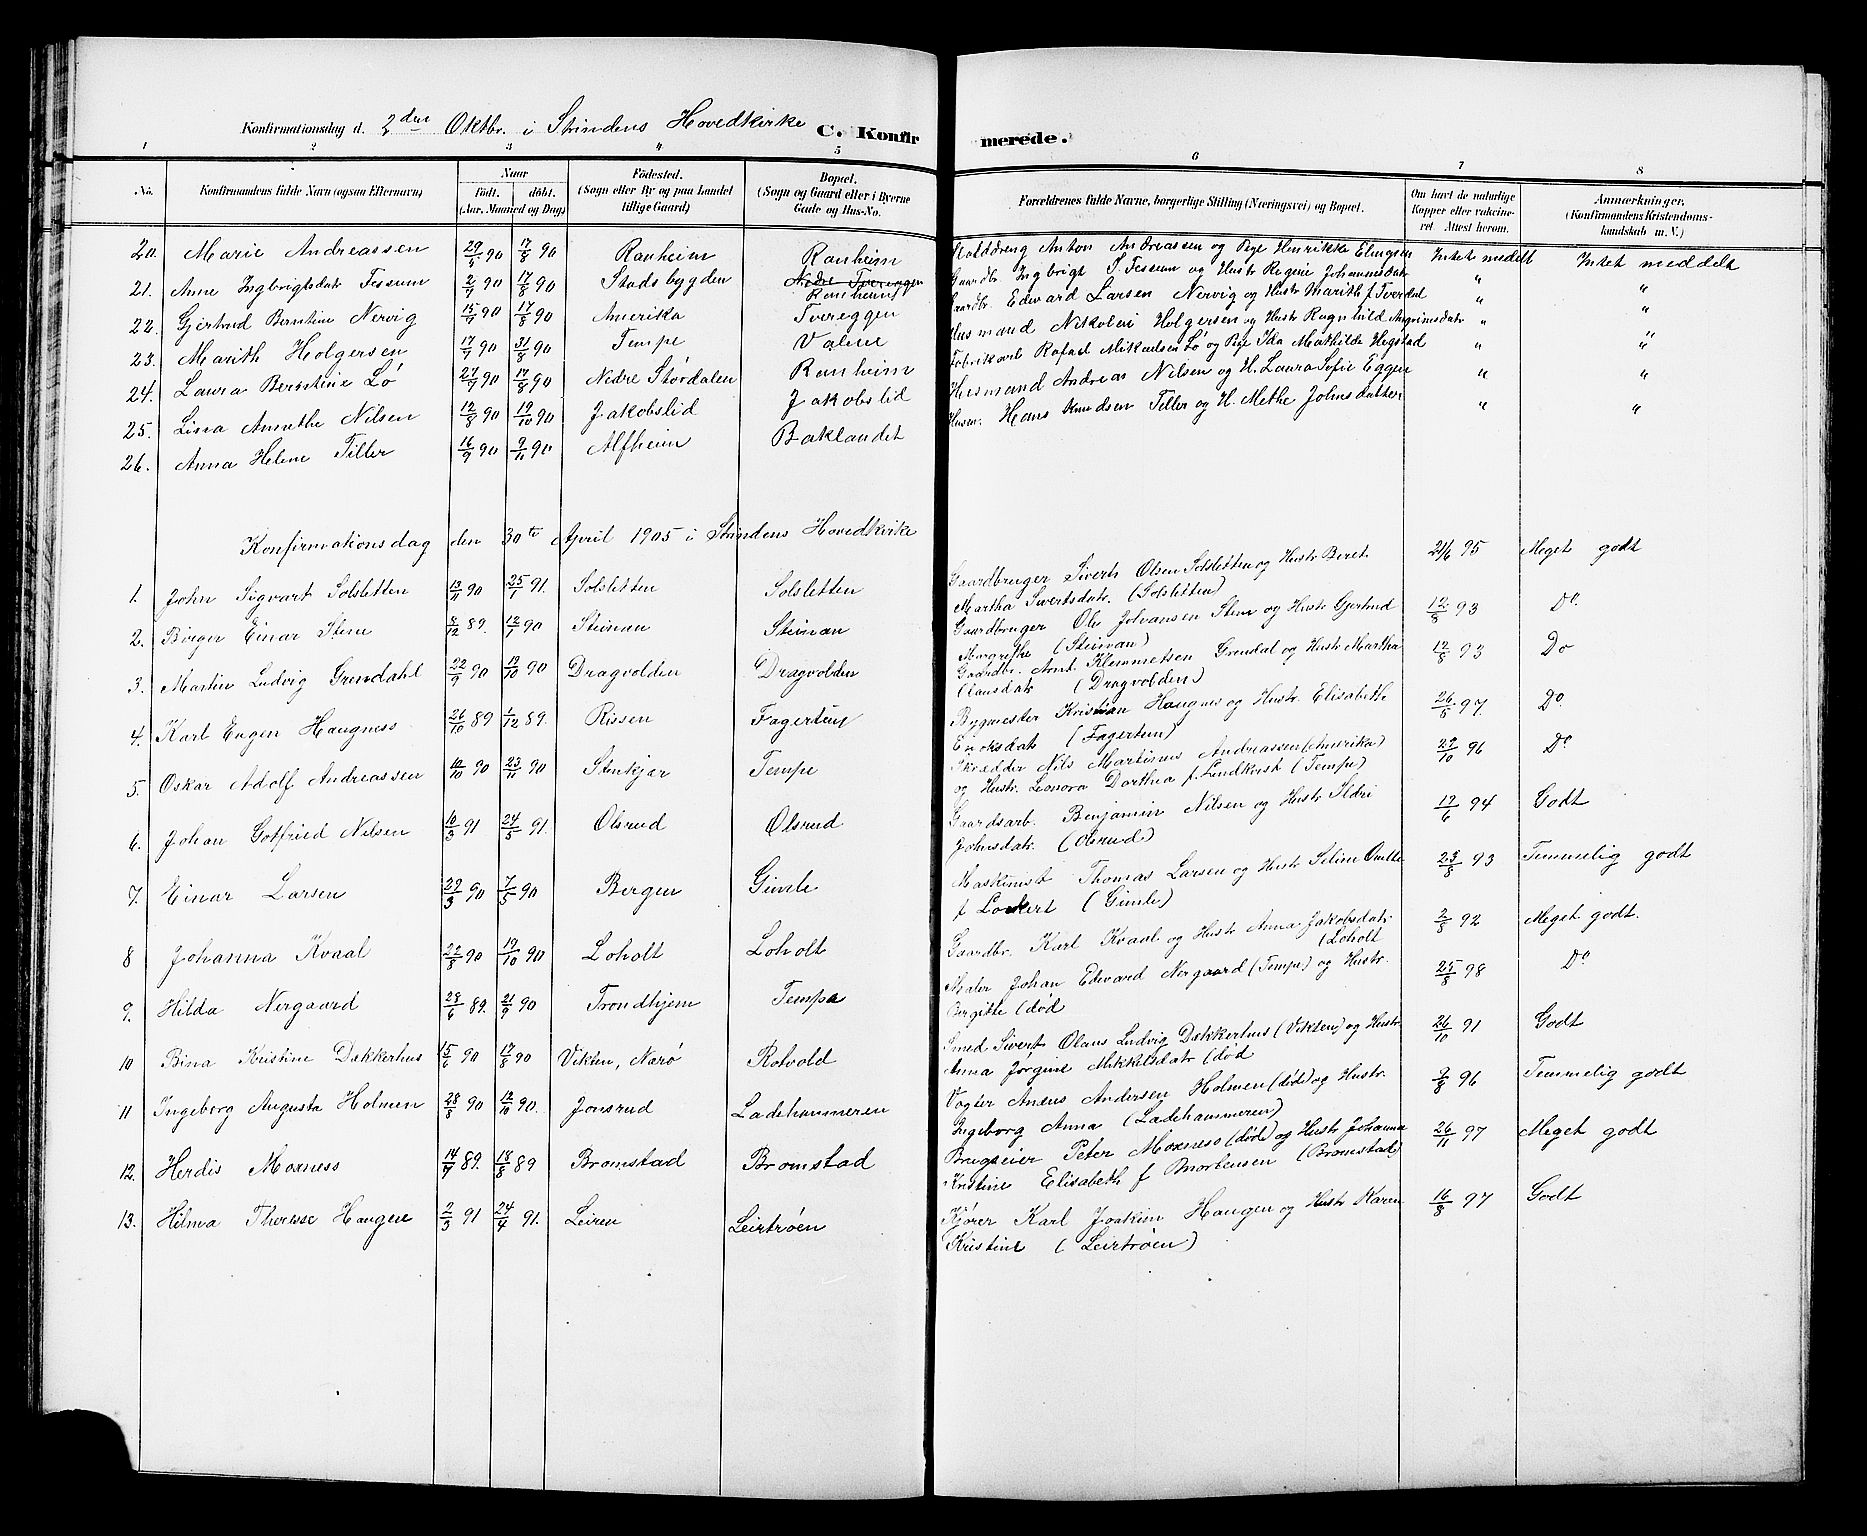 Konfirmationsdag d. 2den Oktbr. i Strindens Hovedkirke C. Konfir merede.
1 2 3 4 5 6 7 8
No. Konfirmandens fulde Navn (ogsaa Efternavn) Naar født. døbt. (Aar, Maaned og Dag) Fødested. (Sogn eller By og paa Landet tillige Gaard) Bopæl. (Sogn og Gaard eller i Byerne Gade og Hus-No. Forældrenes fulde Navne, borgerlige Stilling (Næringsvei) og Bopæl. Om havt de naturlige Kopper eller vaccineret. Attest herom. Anmærkninger, (Konfirmandens Kristendomskundskab m. V.)
20. Marie Andreassen 29/4 90 17/8 90 Ranheim Ranheim Anton Andreassen og Pige Henrikke Elingsen Intet meddelt Intet meddelt
21. Anne Ingbrigtsdatr Fessum 2/7 90 17/8 90 Stadsbygden Nedre Tvereggen Ranheim Gaardbr Ingbrigt S. Fessum og Hustr Regine Johannesdatr " "
22. Gjertrud Berntine Nervig 15/7 90 17/8 90 Amerika Tvereggen Gaardbr. Edvard Larsen Nervig og Hustr Marith f Tverdal " "
23. Marith Holgersen 17/7 90 31/8 90 Tempe Valene Husmand Nikolai Holgersen og Hustr Ragnhild Angrimsdatr " "
24. Laura Berntine Lø 27/7 90 17/8 90 Nedre Størdalen Ranheim Fabrikarb Rafael Mikaelsen Lø og Pige Ida Mathilde Hegstad " "
25. Lina Annethe Nilsen 12/8 90 19/10 90 Jakobslid Jakobslid Husmand Andreas Nilsen og H. Laura Sofie Eggen " "
26. Anna Helene Tiller 16/9 90 9/11 90 Alfheim Baklandet Husm. Hans Knudsen Tiller og H. Methe Johnsdatter " "
Konfirmationsdag den 30te April 1905 i Strindens Hovedkirke
1. John Sigvart Solsletten 13/11 90 25/1 91. Solsletten Solsletten Gaardbruger Siverts Olsen Solsletten og Hustr Beret 21/6 95 Meget godt
Martha Sivertsdatr. (Solsletten)
2. Birger Einar Stene 8/12 89. 12/1 90 Steinan Steinan Gaardbruger Ole Johansen Stene og Hustr Gjertrud 12/8 93 Do.
Margrethe (Steinan)
3. Martin Ludvig Grendahl 22/9 90 19/10 90 Dragvolden Dragvolden Gaardbr. Arnt Klemmetsen Grendal og Hustr Martha 12/8 93 Do
Clausdatr (Dragvolden)
4. Karl Eugen Haugness 26/10 89 1/12 89. Rissen Fagertun Bygmester Kristian Haugnes og Hustr. Elisabeth 26/8 97. Do
(Fagertun)
5. Oskar Adolf Andreassen 10/10 90 23/11 90 Stenkjær Tempe Skrædder Nils Martinus Andreassen (Amerika) 29/10 96 Do
og Hustr. Leonora Dorthea f. Lundkvist (Tempe)
6. Johan Gotfried Nilsen 10/3 91 24/5 91. Olsrud Olsrud Gaardsarb. Benjamin Nilsen og Hustr Ildri 19/6 94 Godt
Johnsdatr. (Olsrud)
7. Einar Larsen 29/3 90 7/5 90 Bergen Gimle Maskinist Thomas Larsen og Hustr Seline 23/8 93 Temmelig godt
f Lockert (Gimle)
8 Johanna Kvaal 22/8 90 19/10 90 Loholt Loholt Gaardbr. Karl Kvaal og Hustr Anna Jakobsdatr 2/8 92 Meget godt.
(Loholt
9. Hilda Nergaard 28/6 89. 21/9 90 Trondhjem Tempe Maler Johan Edvard Nergaard (Tempe) og Hustr. 25/8 98 Do
Birgitte (død
10 Bina Kristine Dækkerhus 15/6 90 17/8 90 Vikten, Narø Rotvold Smed Sivert Olaus Ludvig Dækkerhus (Vikten) og Hustr 26/10 91 Godt
Anna Jørgine Mikkelsdatr (død
11 Ingeborg Augusta Holmen 28/8 90 12/10 90. Jonsrud Ladehammeren Vogter Anæus Andersen Holmen (død) og Hustr. 2/8 96 Temmelig godt
Ingeborg Anna (Ladehammeren)
12. Herdis Moxness 14/7 89. 18/8 89 Bromstad Bromstad Brugseier Peter Moxness (død) og Hustr Johanna 26/11 97 Meget godt
Kristine Elisabeth f Mortensen (Bromstad)
13. Hilma Therese Haugen 2/3 91 24/4 91. Leiren Leirtrøen Kjører Karl Joakim Haugen og Hustr Karen 16/8 97 Godt
Kristine (Leirtrøen)